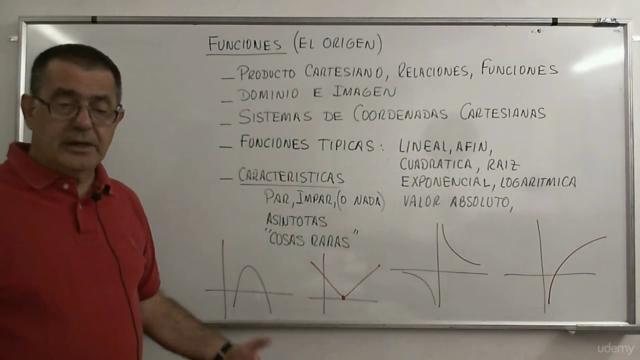 FUNCIONES (EL ORIGEN)
— PRODUCTO CARTESIANO, RELACIONES, FUNCIONES
— DOMINIO E IMAGEN
— SISTEMAS DE COORDENADAS CARTESIANAS
— FUNCIONES TIPICAS: LINEAL, AFIN,
CUADRATICA, RAIZ
EXPONENCIAL, LOGARITMICA
VALOR ABSOLUTO,
— CARACTERISTICAS
PAR, IMPAR, (O NADA)
ASINTOTAS
"COSAS RARAS"
udemy